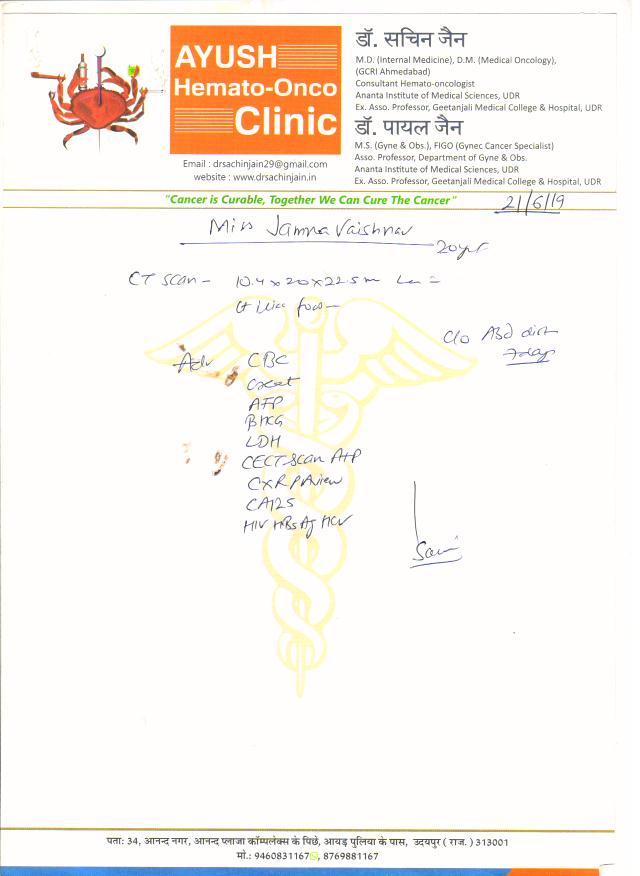 AYUSH
Hemato-Onco
Clinic
Email : drsachinjain29@gmail.com
website : www.drsachinjain.in
डॉ. सचिन जैन
M.D. (Internal Medicine), D.M. (Medical Oncology),
(GCRI Ahmedabad)
Consultant Hemato-oncologist
Ananta Institute of Medical Sciences, UDR
Ex. Asso. Professor, Geetanjali Medical College & Hospital, UDR
डॉ. पायल जैन
M.S. (Gyne & Obs.), FIGO (Gynec Cancer Specialist)
Asso. Professor, Department of Gyne & Obs.
Ananta Institute of Medical Sciences, UDR
Ex. Asso. Professor, Geetanjali Medical College & Hospital, UDR
"Cancer is Curable, Together We Can Cure The Cancer"
21/6/19
Miss Jamna Vaishnav
20yr
CT scan - 10.4x20x22.5
C/o Abd dist
7 days
Adv CBC
Creat
AFP
BHCG
LDH
CECT Scan A+P
CXR PA view
CA125
HIV HBsAg HCV
पताः 34, आनन्द नगर, आनन्द प्लाजा कॉम्पलेक्स के पिछे, आयड़ पुलिया के पास, उदयपुर ( राज. ) 313001
मो.: 9460831167, 8769881167